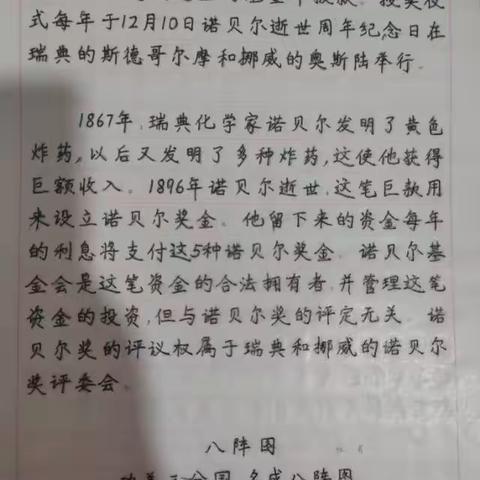 式每年于12月10日诺贝尔逝世周年纪念日在
瑞典的斯德哥尔摩和挪威的奥斯陆举行.
1867年,瑞典化学家诺贝尔发明了黄色
炸药,以后又发明了多种炸药,这使他获得
巨额收入。1896年诺贝尔逝世,这笔巨款用
来设立诺贝尔奖金。他留下来的资金每年
的利息将支付这5种诺贝尔奖金。诺贝尔基
金会是这笔资金的合法拥有者,并管理这笔
资金的投资,但与诺贝尔奖的评定无关.诺
贝尔奖的评议权属于瑞典和挪威的诺贝尔
奖评委会。
八阵图
功盖三分国,名成八阵图